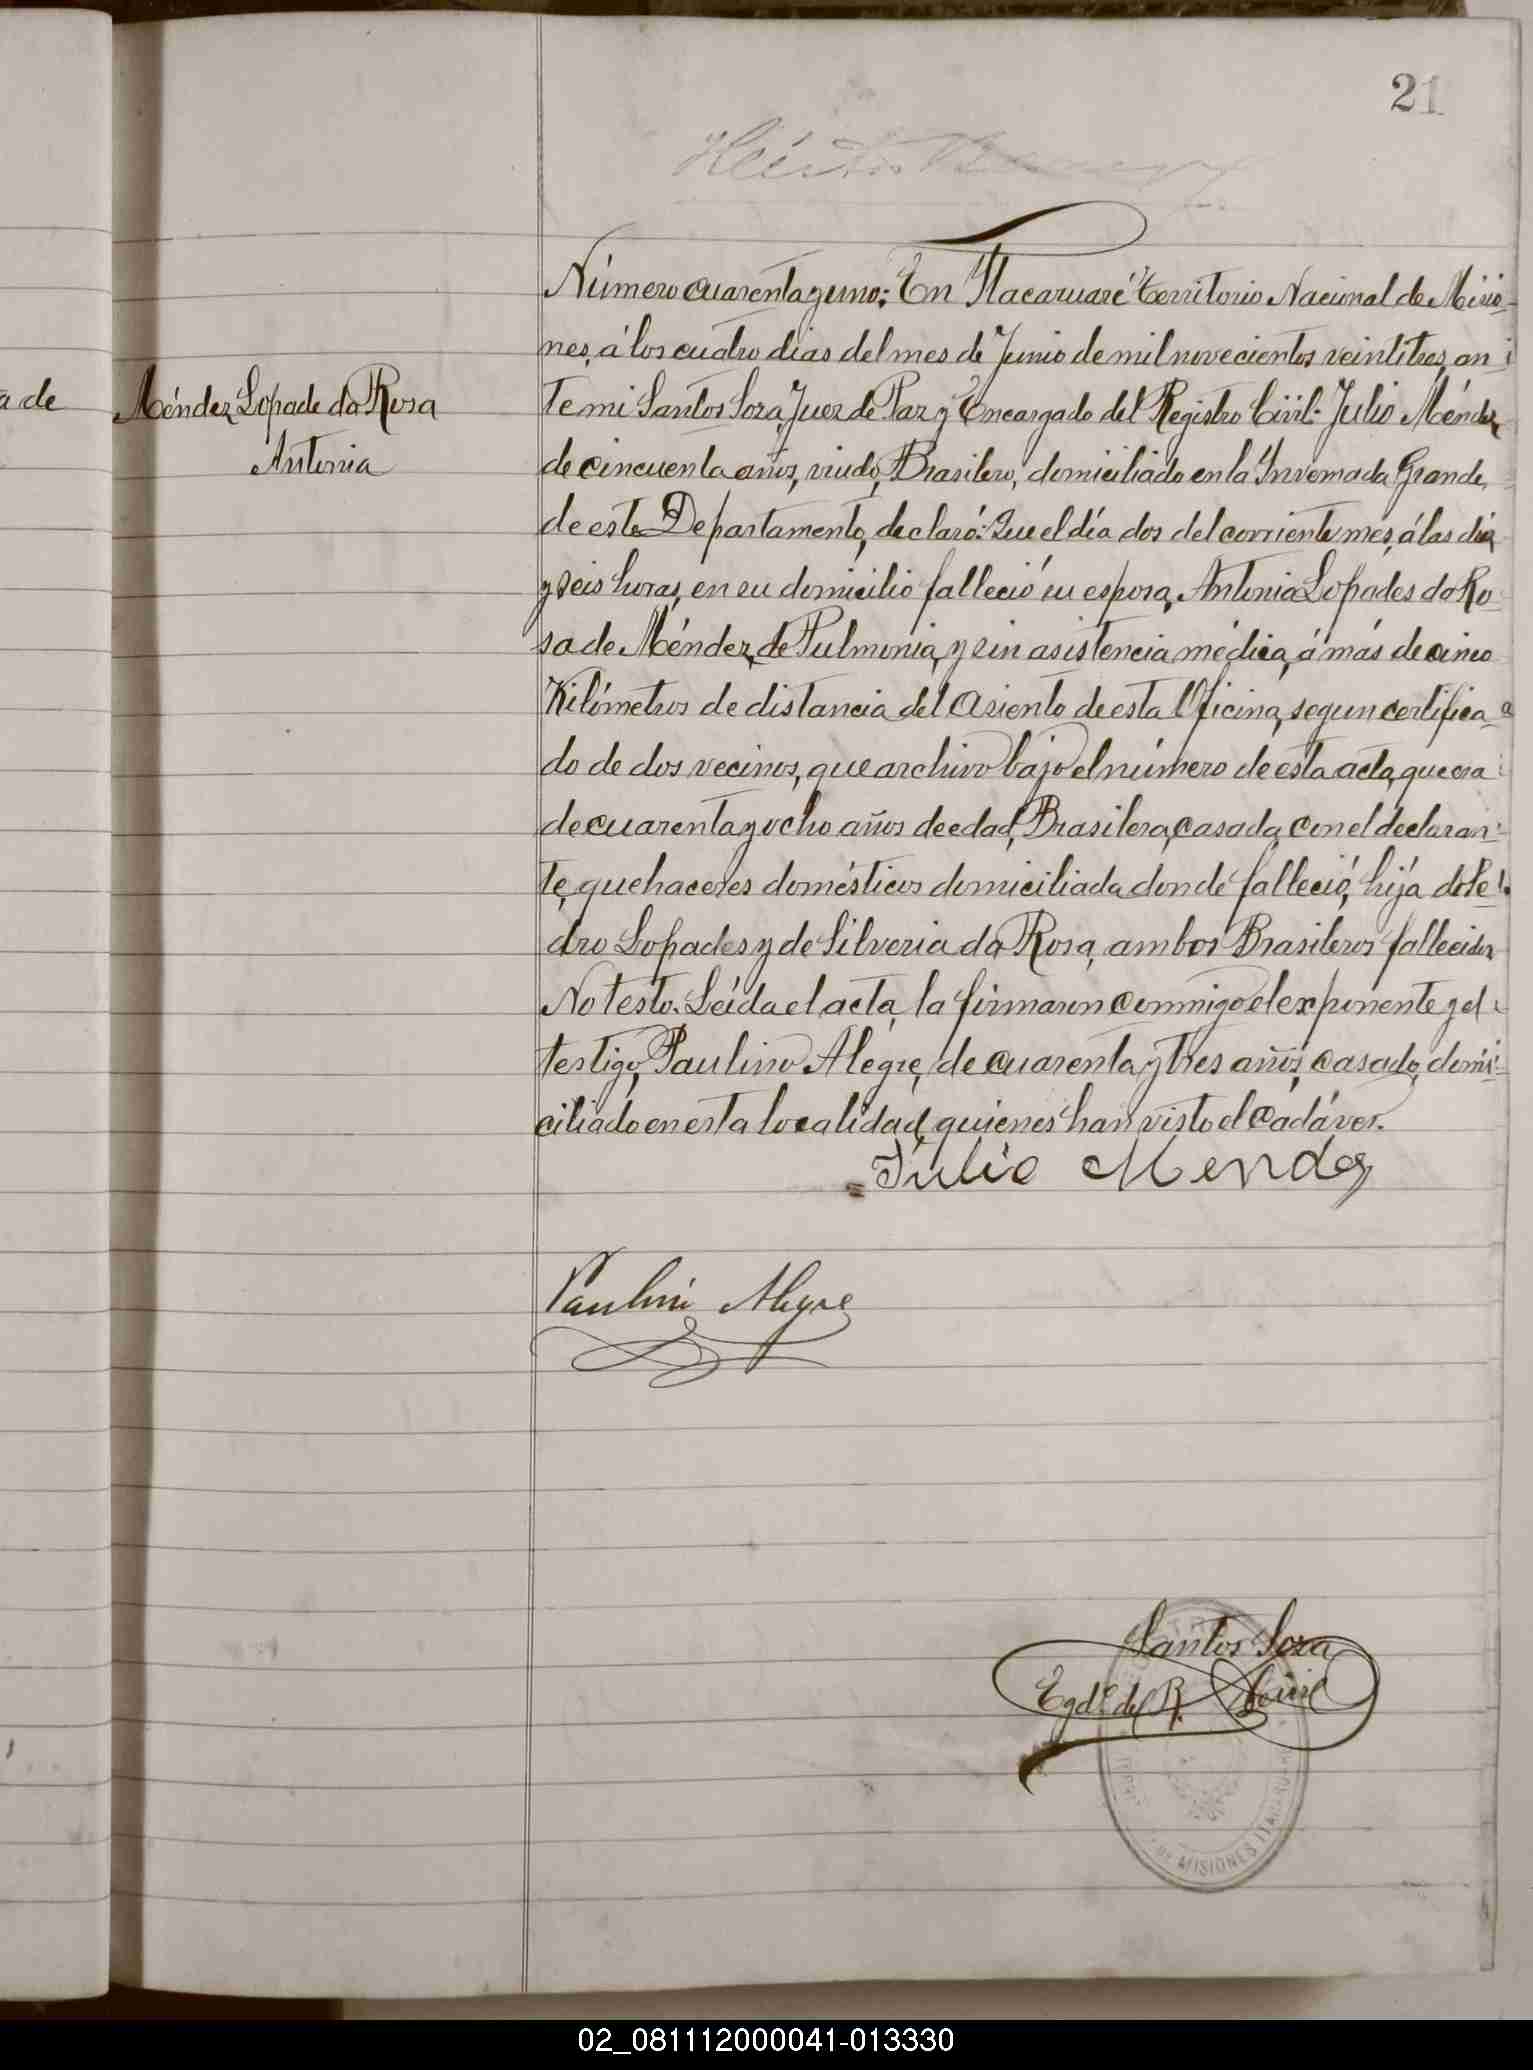 21
a de
Méndez Lopade da Rosa
Antonia
Número cuarenta y uno: En Itacaruaré Territorio Nacional de Misio-
nes, á los cuatro dias del mes de Junio de mil novecientos veintitres, an
te mi Santos Soza, Juez de Paz y Encargado del Registro Civil: Julio Méndez
de cincuenta años, viudo, Brasilero, domiciliado en la Invernada Grande,
de este Departamento, declaró: Que el día dos del corriente mes, á las diez
y seis horas, en su domicilio falleció su esposa, Antonia Lopades da Ro
sa de Méndez, de Pulmonia, y sin asistencia médica, á más de cinco
Kilómetros de distancia del Asiento de esta Oficina, segun certifica
do de dos vecinos, que archivo bajo el número de esta acta, que era
de cuarenta y ocho años de edad, Brasilera, casada, con el declaran-
te, quehaceres domésticos domiciliada donde falleció, hija de Pe
dro Lopades y de Silveria da Rosa, ambos Brasileros fallecidos
No testo. Leída el acta, la firmaron conmigo el exponente y el
testigo, Paulino Alegre, de cuarenta y tres años, casado, domi-
ciliado en esta localidad, quienes han visto el cadáver.
Julio Mendez
Paulino Alegre
Santos Soza
Egdo. del R. Civil
MISIONES ITACARUARE
02_081112000041-013330